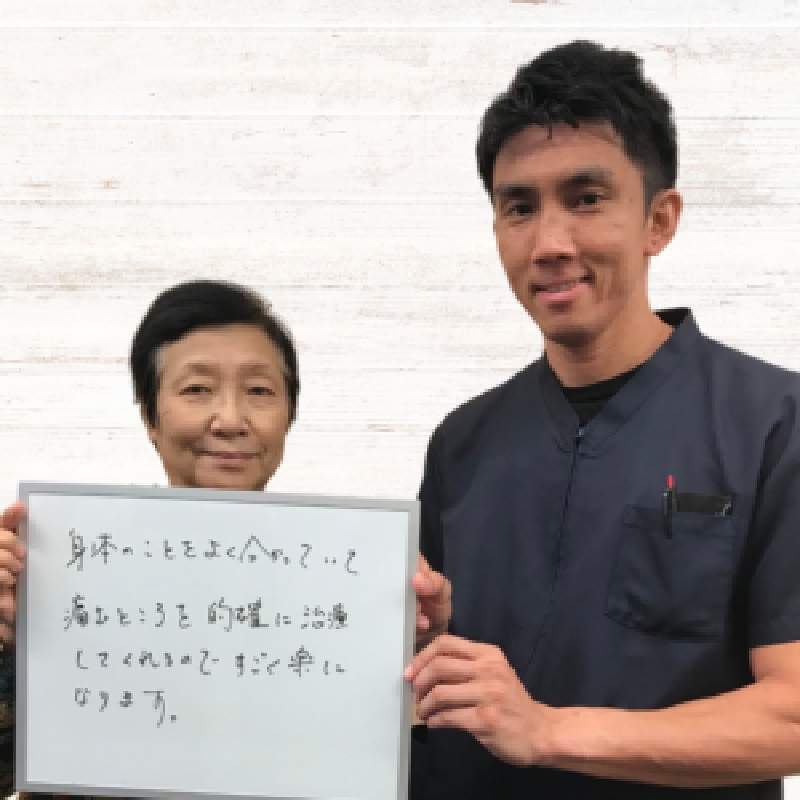 身体のことをよく分かっていて
痛むところを的確に治療
してくれるのですごく楽に
なります。